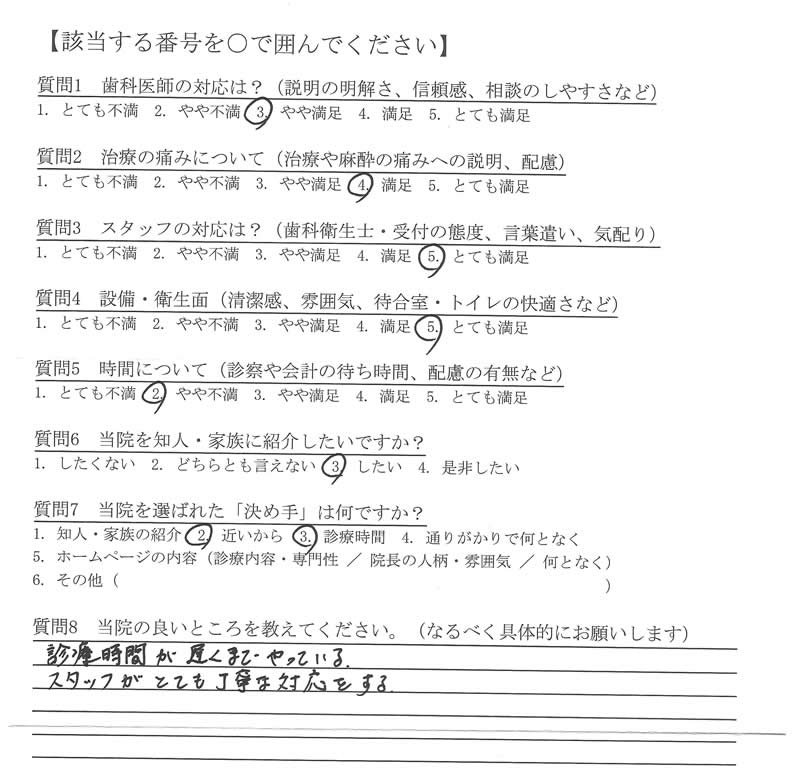 【該当する番号を○で囲んでください】
質問1 歯科医師の対応は？（説明の明解さ、信頼感、相談のしやすさなど）
1. とても不満 2. やや不満 3. やや満足 4. 満足 5. とても満足
質問2 治療の痛みについて（治療や麻酔の痛みへの説明、配慮）
1. とても不満 2. やや不満 3. やや満足 4. 満足 5. とても満足
質問3 スタッフの対応は？（歯科衛生士・受付の態度、言葉遣い、気配り）
1. とても不満 2. やや不満 3. やや満足 4. 満足 5. とても満足
質問4 設備・衛生面（清潔感、雰囲気、待合室・トイレの快適さなど）
1. とても不満 2. やや不満 3. やや満足 4. 満足 5. とても満足
質問5 時間について（診察や会計の待ち時間、配慮の有無など）
1. とても不満 2. やや不満 3. やや満足 4. 満足 5. とても満足
質問6 当院を知人・家族に紹介したいですか？
1. したくない 2. どちらとも言えない 3. したい 4. 是非したい
質問7 当院を選ばれた「決め手」は何ですか？
1. 知人・家族の紹介 2. 近いから 3. 診療時間 4. 通りがかりで何となく
5. ホームページの内容（診療内容・専門性 ／ 院長の人柄・雰囲気 ／ 何となく）
6. その他（ ）
質問8 当院の良いところを教えてください。（なるべく具体的にお願いします）
診療時間が遅くまでやっている.
スタッフがとても丁寧な対応をする.